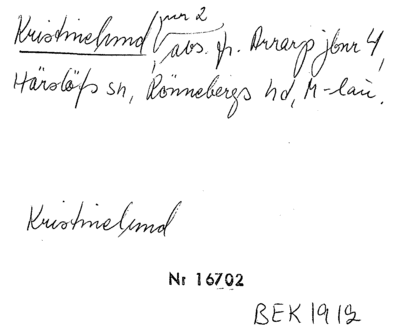 Kristinelund nr 2
avs. fr. Arrarp jbnr 4,
Härslöfs sn, Rönnebergs hd, M-län.
Kristinelund
Nr 16702
BEK 1919